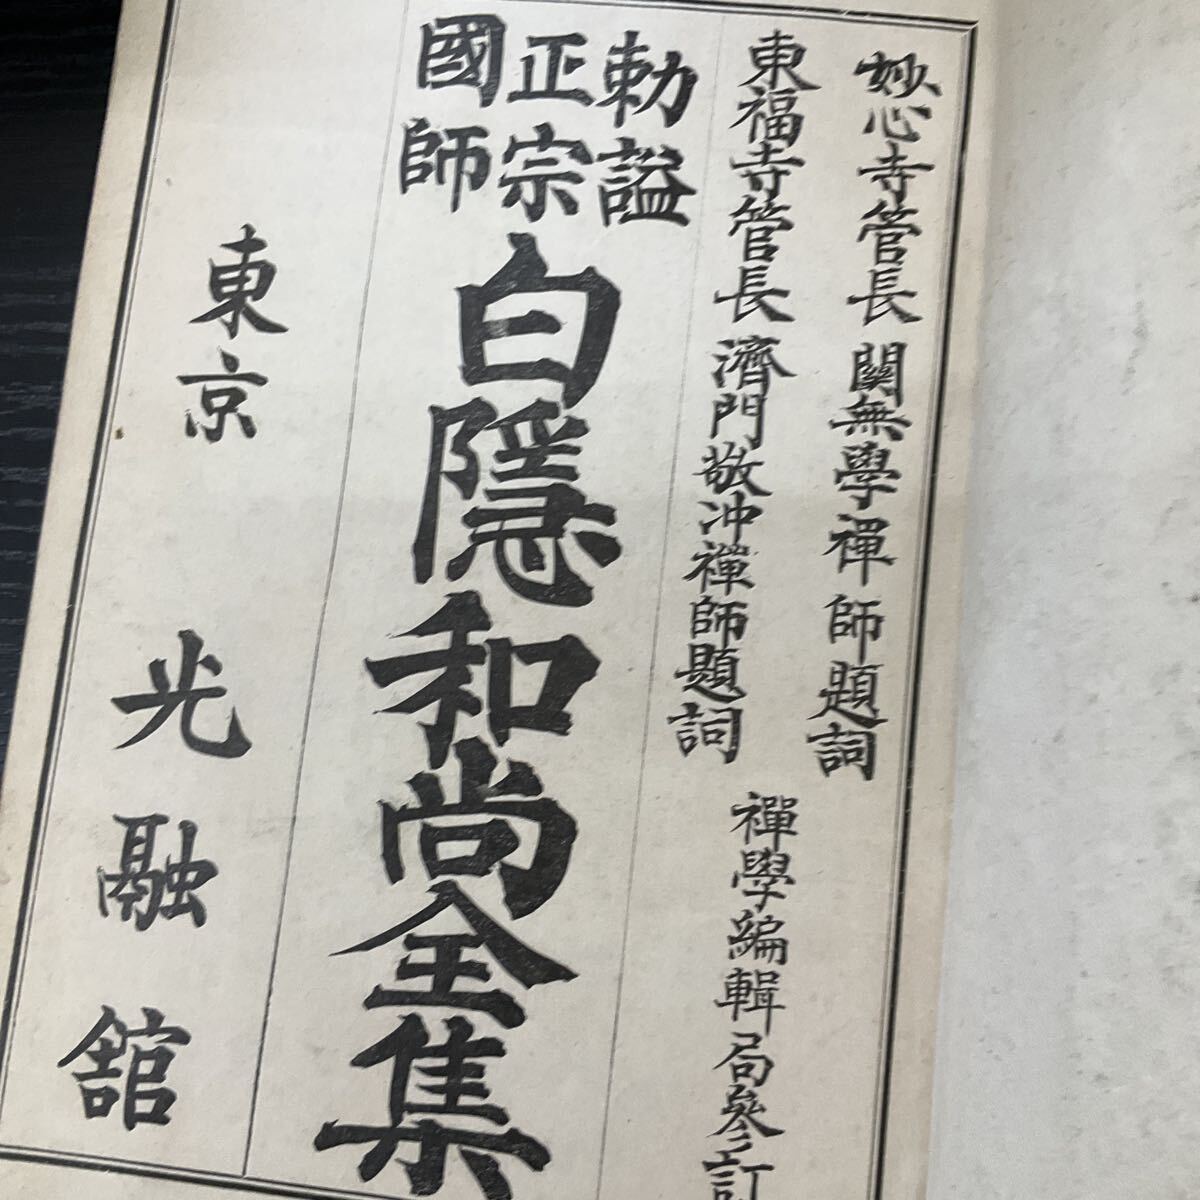 妙心寺管長 關無學禪師題詞
東福寺管長 濟門敬冲禪師題詞
禪學編輯局參訂
勅謚
正宗
國師
白隱和尚全集
東京 光融舘